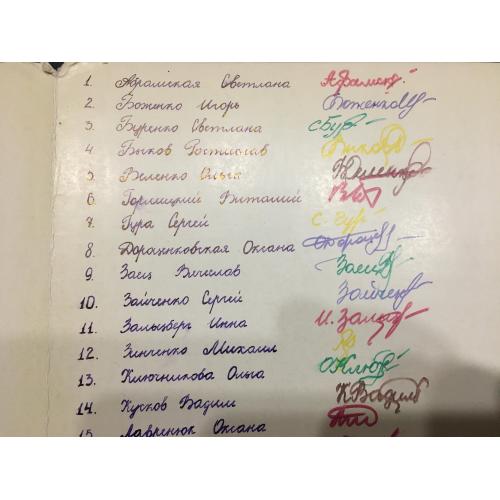 1. Абрамская Светлана Абрамск
2. Боженко Игорь Боженко
3. Буренко Светлана СБур
4. Быков Ростислав Быков
5. Веленко Ольга
6. Горлицкий Виталий
7. Гура Сергей С. Гур
8. Доращенковская Оксана
9. Заец Вячеслав Заец
10. Зайченко Сергей Зайчен
11. Зальцберг Инна И. Зальц
12. Зинченко Михаил
13. Ключникова Ольга ОКлюч
14. Кусков Вадим КВадим
15. Лавренюк Оксана